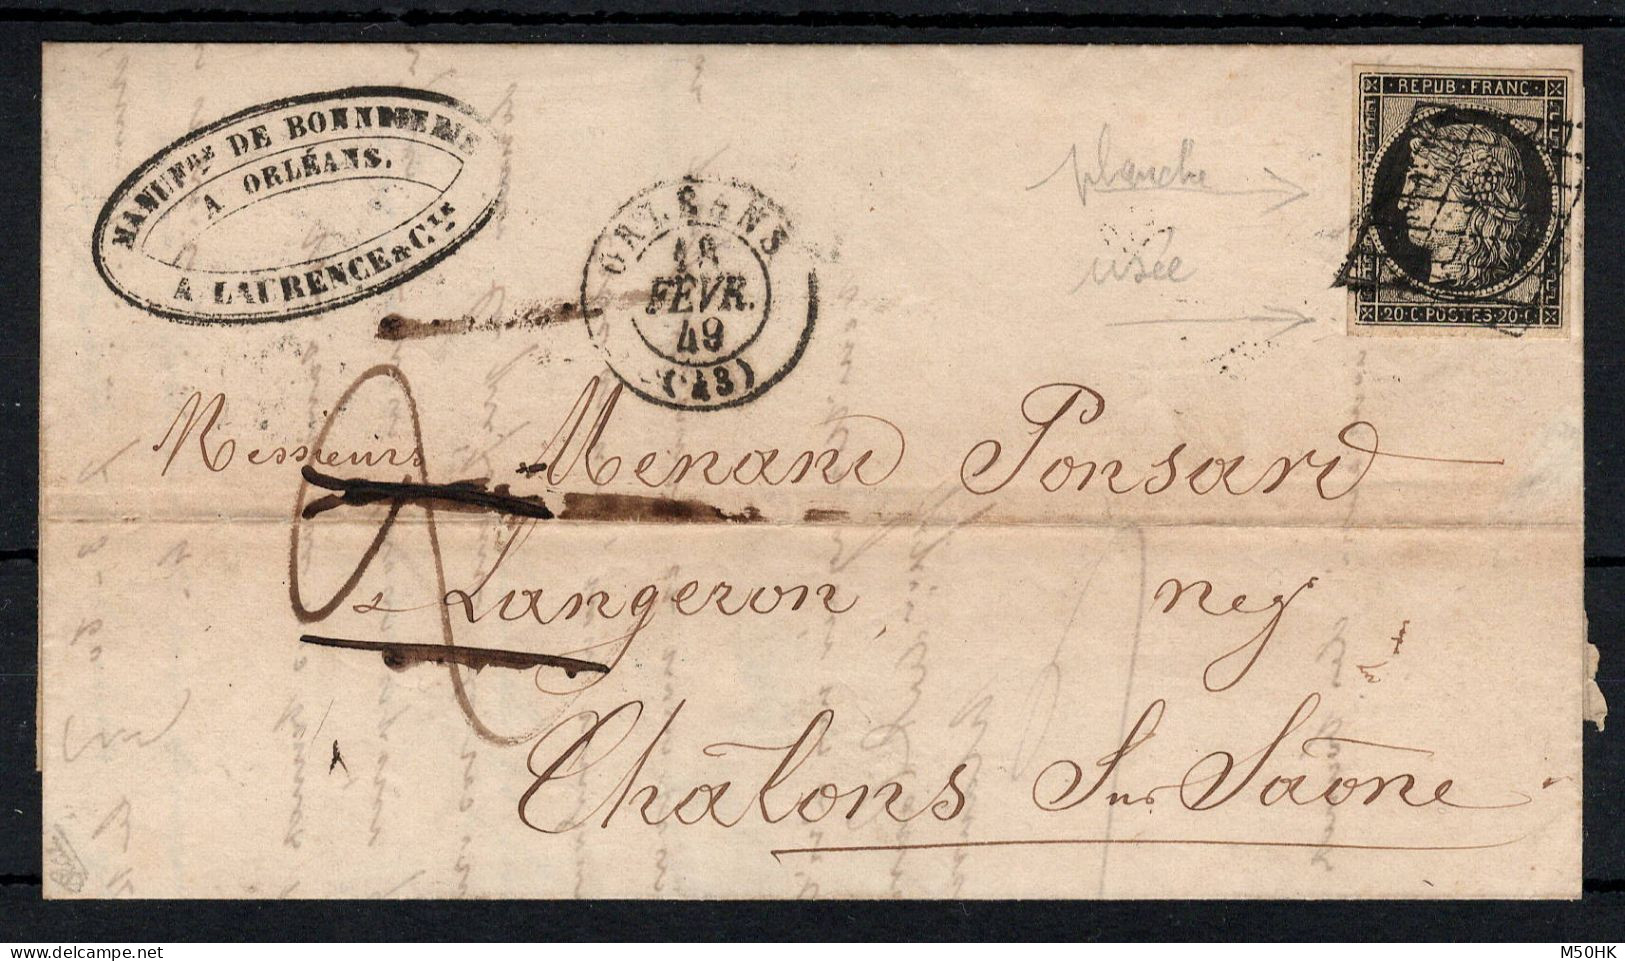 MANUFRE DE BONNETERIE
A ORLÉANS.
A. LAURENCE & CIE
ORLÉANS
18
FEVR.
49
(43)
REPUB·FRANC·
20·C·POSTES·20·C
planche
usée
Messieurs Menand Ponsard
& Langeron, neg
Châlons Sur Saône
M50HK